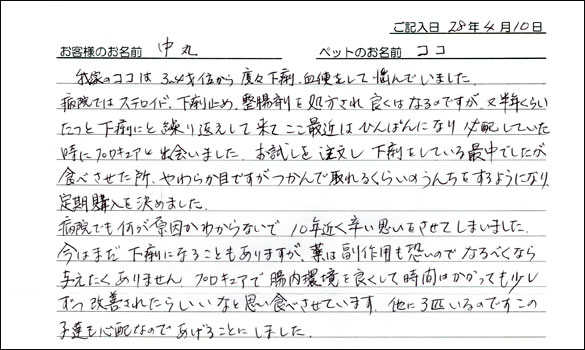 ご記入日 28年4月10日
お客様のお名前 中丸 ペットのお名前 ココ
我家のココは3〜4才位から度々下剤、血便をして悩んでいました。
病院ではステロイド、下剤止め、整腸剤を処方され良くはなるのですが、又半年くらい
たつと下剤にと繰り返えして来てここ最近はひんぱんになり心配していた
時にプロキュアと出会いました。お試しを注文し下剤をしている最中でしたが
食べさせた所、やわらか目ですがつかんで取れるくらいのうんちをするようになり
定期購入を決めました。
病院でも何が原因かわからないで10年近く辛い思いをさせてしまいました。
今はまだ下剤になることもありますが、薬は副作用も恐いのでなるべくなら
与えたくありません プロキュアで腸内環境を良くして時間はかかっても少し
ずつ改善されたらいいなと思い食べさせています。他に3匹いるのですこの
子達も心配なのであげることにしました。